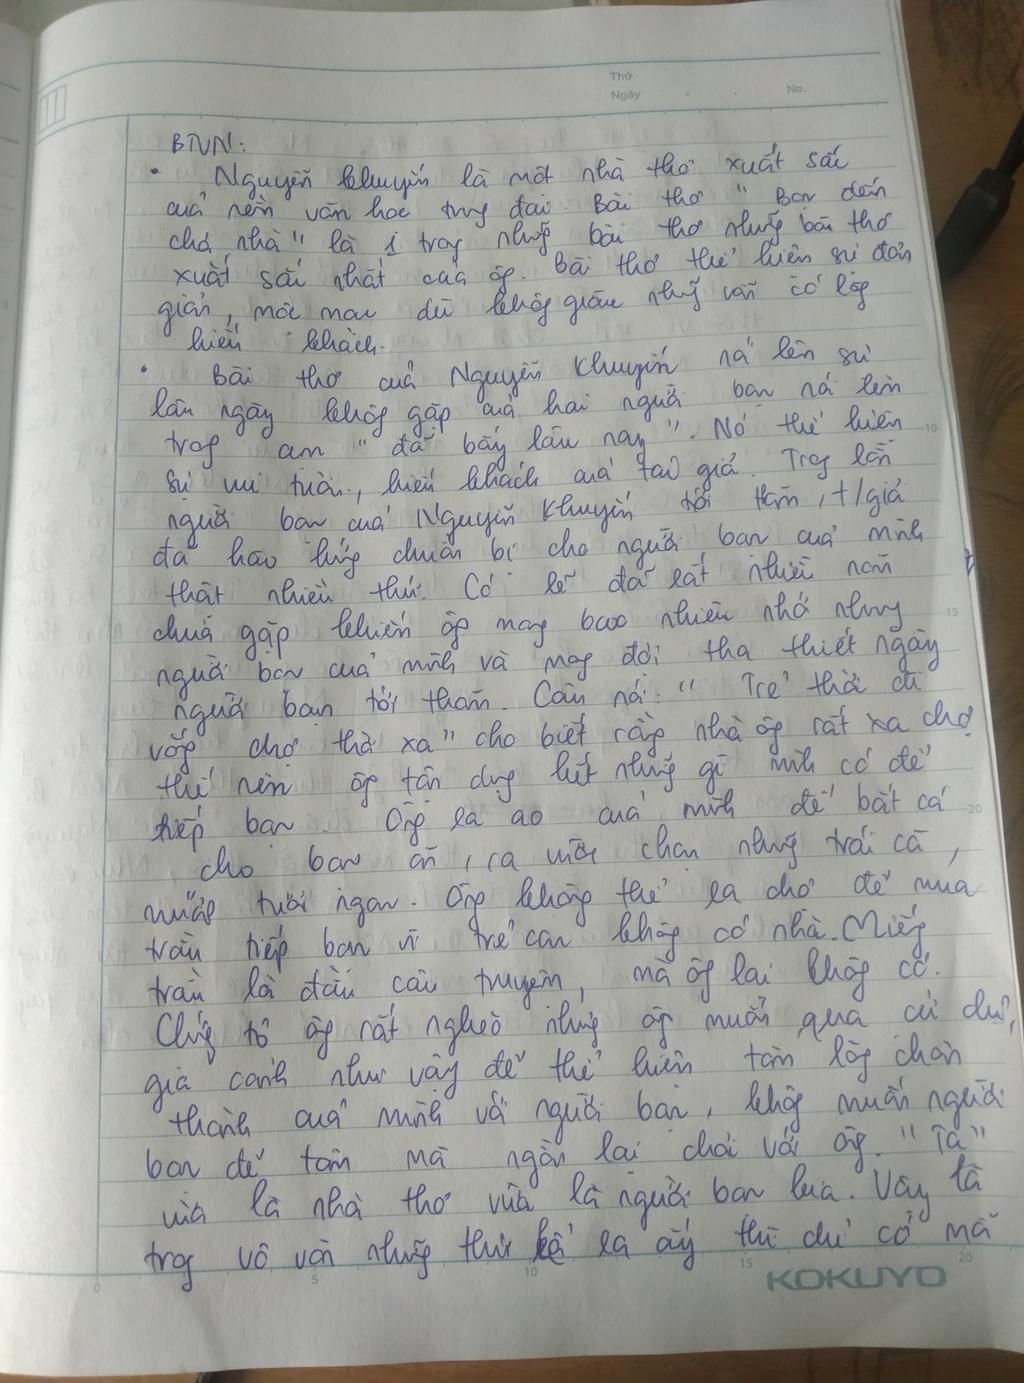 Thứ
Ngày . . No.
BTVN:
• Nguyễn Khuyến là một nhà thơ xuất sắc
của nền văn học trung đại. Bài thơ " Bạn đến
chơi nhà" là 1 trog nhữg bài thơ nhữg bài thơ
xuất sắc nhất của ôg. Bài thơ thể hiện sự đơn
giản, mộc mạc dù khôg giàu nhưg vẫn có lòg
hiếu khách.
• Bài thơ của Nguyễn Khuyến nói lên sự
lâu ngày khôg gặp của hai người bạn nói lên
trog cụm " đã bấy lâu nay". Nó thể hiện
sự vui tươi, hiếu khách của tác giả. Trog lần
người bạn của Nguyễn Khuyến tới thăm, t/giả
đã hào hứng chuẩn bị cho người bạn của mình
thật nhiều thứ. Có lẽ đã rất nhiều năm
chưa gặp khiến ôg mang bao nhiêu nhớ nhung
người bạn của mình và mog đợi tha thiết ngày
người bạn tới thăm. Câu nói: " Trẻ thời đi
vắg chợ thời xa" cho biết rằg nhà ôg rất xa chợ
thế nên ôg tận dụg hết nhữg gì mình có để
tiếp bạn. Ôg ra ao của mình để bắt cá
cho bạn ăn, ra vườn chọn nhữg trái cà,
mướp tươi ngon. Ôg khôg thể ra chợ để mua
trầu tiếp bạn vì trẻ con khôg có nhà. Miếg
trầu là đầu câu truyện, mà ôg lại khôg có.
Chứg tỏ ôg rất nghèo nhưg ôg muốn qua cử
giả cảnh như vậy để thể hiện tấm lòg chân
thành của mình với người bạn, khôg muốn người
bạn để tâm mà ngần lại chơi với ôg. " Ta"
vừa là nhà thơ vừa là người bạn kia. Vậy là
trog vô vàn nhữg thứ kể ra ấy thì chỉ có mỗi
5 10 15 20
10
15
20
KOKUYO